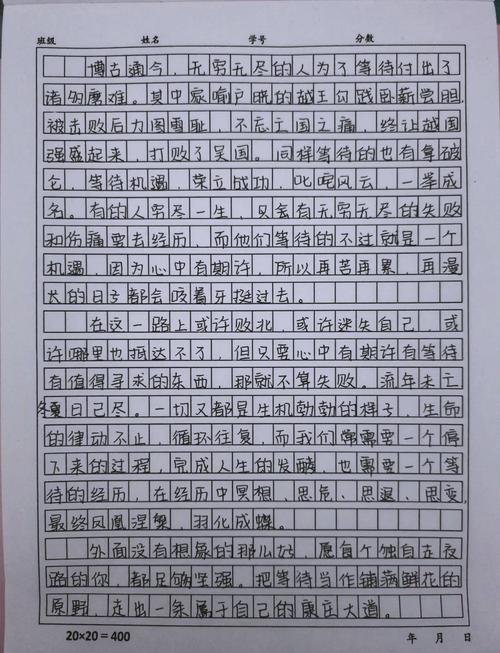 班级 姓名 学号 分数
博古通今，无穷无尽的人为了等待付出了
诸多磨难。其中家喻户晓的越王勾践卧薪尝胆，
被击败后力图雪耻，不忘亡国之痛，终让越国
强盛起来，打败了吴国。同样等待的也有拿破
仑，等待机遇，荣立成功，叱咤风云，一举成
名。有的人穷尽一生，只会有无穷无尽的失败
和伤痛需去经历，而他们等待的不过就是一个
机遇，因为心中有期许，所以再苦再累，再漫
长的日子都会咬着牙挺过去。
在这一路上或许败北，或许迷失自己，或
许哪里也抵达不了，但只要心中有期许有等待
有值得寻求的东西，那就不算失败。流年未亡
冬夏日已尽。一切又都是生机勃勃的样子，生命
的律动不止，循环往复，而我们常需要一个停
下来的过程，完成人生的发酵，也需要一个等
待的经历，在经历中冥想，思危、思退、思变，
最终凤凰涅槃，羽化成蝶。
外面没有想象的那么好，愿每个独自在夜
路的你，都足够坚强。把等待当作铺满鲜花的
原野，走出一条属于自己的康庄大道。
20×20=400 年 月 日